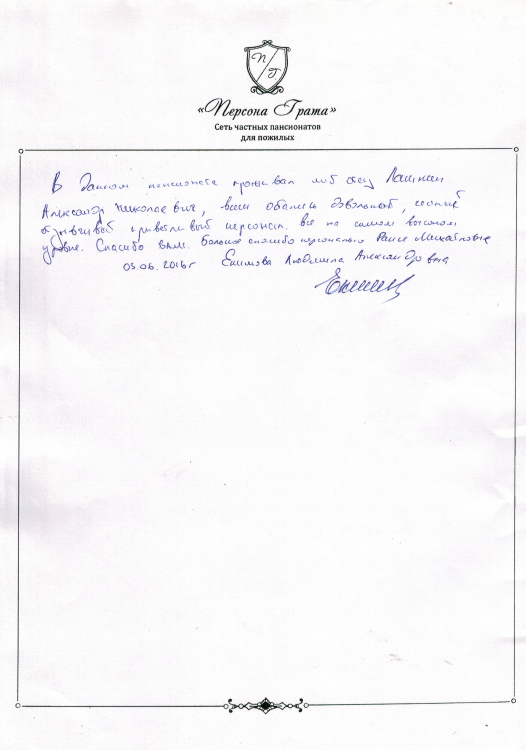 П Г
«Персона Грата»
Сеть частных пансионатов
для пожилых
В данном пансионате проживал мой отец Лашкин
Александр Николаевич, всем остались довольны,
отзывчивый приветливый персонал. Все на самом высоком
уровне. Спасибо Вам. Большое спасибо персонально Раисе Михайловне
05.06.2016г Екимова Людмила Александровна